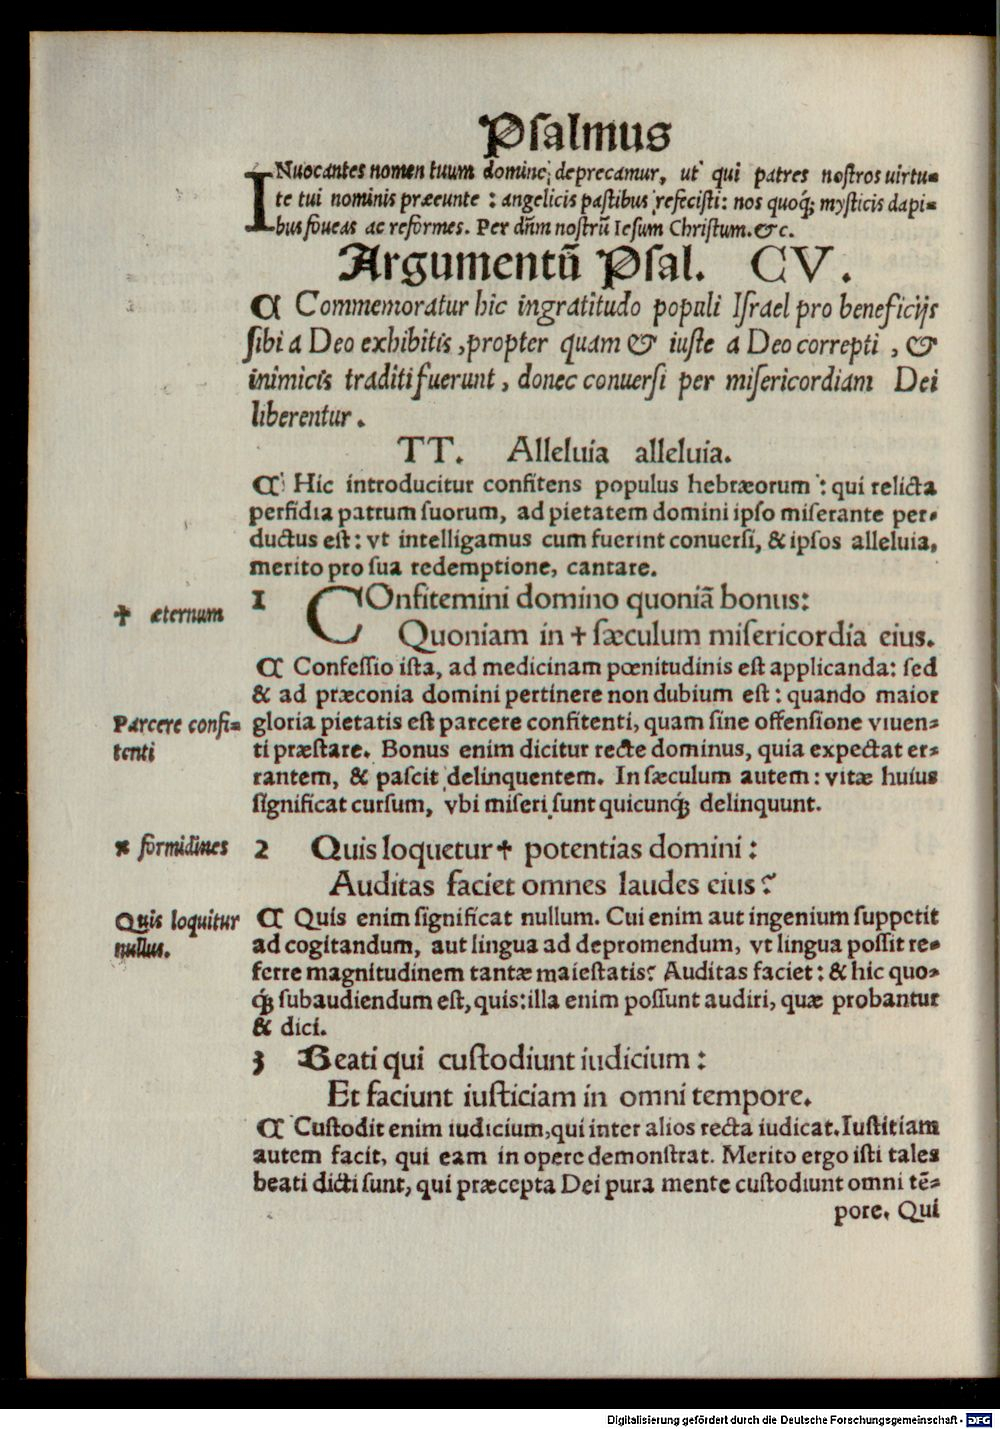 Psalmus
INuocantes nomen tuum domine, deprecamur, ut qui patres nostros uirtu-
te tui nominis præeunte : angelicis pastibus refecisti: nos quoq; mysticis dapi-
bus foueas ac reformes. Per dñm nostrũ Iesum Christum.&c.
Argumentũ Psal. CV.
¶ Commemoratur hic ingratitudo populi Israel pro beneficijs
sibi a Deo exhibitis, propter quam & iuste a Deo correpti, &
inimicis traditi fuerunt, donec conuersi per misericordiam Dei
liberentur.
TT. Alleluia alleluia.
¶ Hic introducitur confitens populus hebræorum : qui relicta
perfidia patrum suorum, ad pietatem domini ipso miserante per-
ductus est: vt intelligamus cum fuerint conuersi, & ipsos alleluia,
merito pro sua redemptione, cantare.
1 COnfitemini domino quoniã bonus:
✝ æternum
Quoniam in ✝ sæculum misericordia eius.
¶ Confessio ista, ad medicinam pœnitudinis est applicanda: sed
& ad præconia domini pertinere non dubium est: quando maior
Parcere confi-
tenti
gloria pietatis est parcere confitenti, quam sine offensione viuen-
ti præstare. Bonus enim dicitur recte dominus, quia expectat er-
rantem, & pascit delinquentem. In sæculum autem: vitæ huius
significat cursum, vbi miseri sunt quicunq; delinquunt.
✠ formidines
2 Quis loquetur ✝ potentias domini :
Auditas faciet omnes laudes eius?
Quis loquitur
nullus.
¶ Quis enim significat nullum. Cui enim aut ingenium suppetit
ad cogitandum, aut lingua ad depromendum, vt lingua possit re-
ferre magnitudinem tantæ maiestatis? Auditas faciet: & hic quo-
q; subaudiendum est, quis: illa enim possunt audiri, quæ probantur
& dici.
3 Beati qui custodiunt iudicium :
Et faciunt iusticiam in omni tempore.
¶ Custodit enim iudicium, qui inter alios recta iudicat. Iustitiam
autem facit, qui eam in opere demonstrat. Merito ergo isti tales
beati dicti sunt, qui præcepta Dei pura mente custodiunt omni tẽ-
pore. Qui
Digitalisierung gefördert durch die Deutsche Forschungsgemeinschaft - DFG